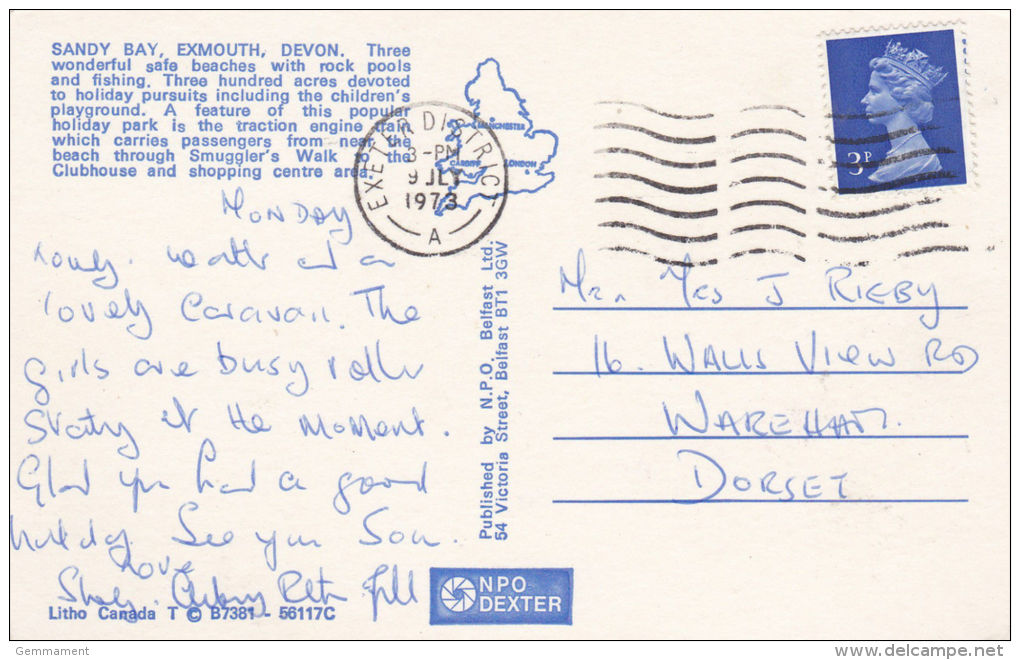 SANDY BAY, EXMOUTH, DEVON. Three
wonderful safe beaches with rock pools
and fishing. Three hundred acres devoted
to holiday pursuits including the children's
playground. A feature of this popular
holiday park is the traction engine train
which carries passengers from near the
beach through Smuggler's Walk to the
Clubhouse and shopping centre area.
MANCHESTER
CARDIFF
LONDON
EXETER DISTRICT
3-PM
9 JLY
1973
A
3P
Monday
Lovely weather and a
lovely Caravan. The
girls are busy roller
Skating at the moment.
Glad you had a good
holiday. See you Soon.
Love
Jill
Published by N.P.O. Belfast Ltd.
54 Victoria Street, Belfast BT1 3GW
Mr. Mrs J RIGBY
16. WALLS VIEW RD
WAREHAM.
DORSET
Litho Canada T © B7381 - 56117C
NPO
DEXTER
Gemmament
delcampe.net